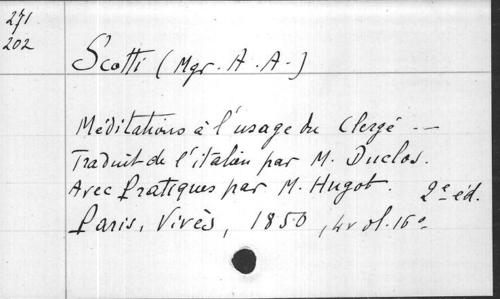 271
202
Scotti (Mgr. A. A.)
Méditations à l'usage du Clergé —
Traduit de l'italien par M. Duclos.
Avec Pratiques par M. Hugot. 2e éd.
Paris, Vivès, 1850, 4 vol. 16o